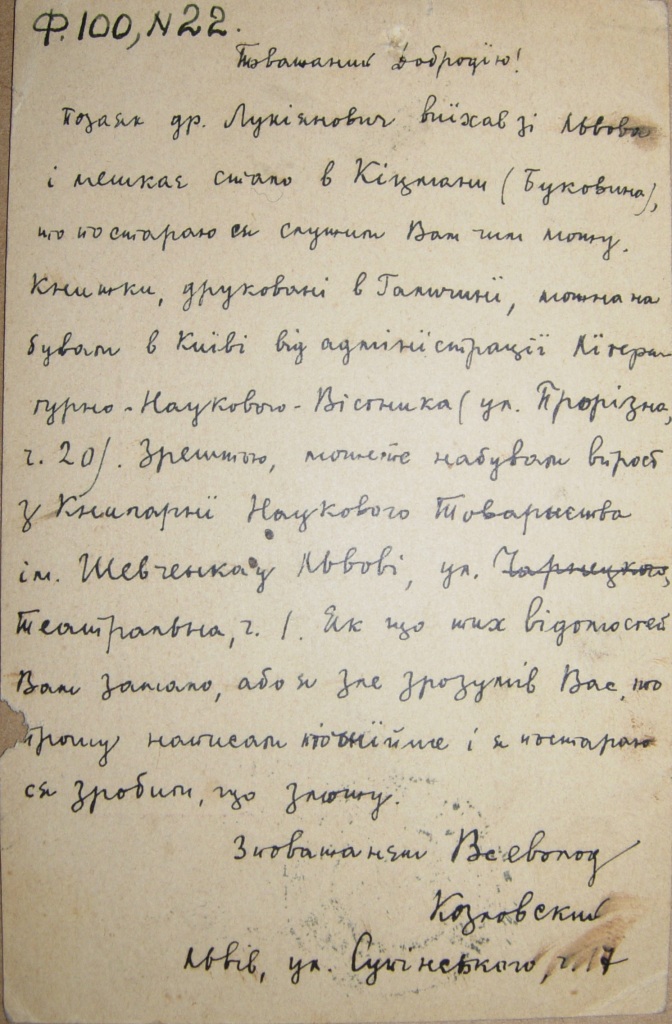 Ф. 100, N 22.
Поважаний Добродїю!
Позаяк др. Лукіянович виїхав зі Львова
і мешкає стало в Кіцмани (Буковина),
то постараю ся служити Вам чим можу.
Книжки, друковані в Галичинї, можна на
бувати в Київі від адмінїстрації Лїтера
турно-Наукового-Вістника (ул. Прорізна,
ч. 20). Зрештою, можете набувати впрост
з Книгарнї Наукового Товариства
ім. Шевченка у Львові, ул. Чарнецкого,
Театральна, ч. 1. Як що тих відомостей
Вам замало, або я зле зрозумів Вас, то
прошу написати точнїйше і я постараю
ся зробити, що зможу.
З поважанєм Всеволод
Козловский
Львів, ул. Супінського, ч. 17